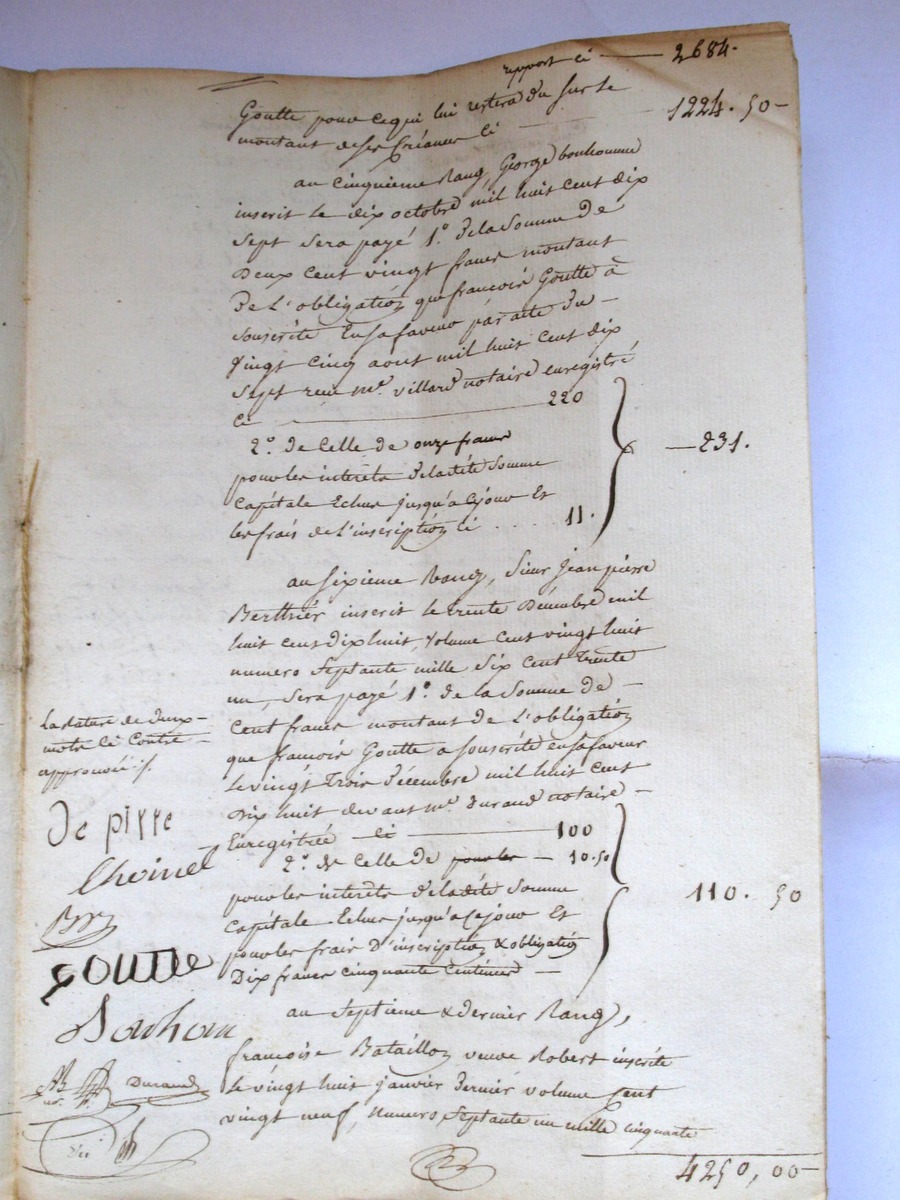 report ci — 2684.
Goutte pour ce qui lui restera du sur le
montant de ses créances ci — 1224. 50 —
au cinquieme Rang, George bonhomme
inscrit le dix octobre mil huit cent dix
sept sera payé 1.º de la Somme de
Deux cent vingt francs montant
De L'obligation que francois Goutte à
souscrite En sa faveur par acte du —
vingt cinq aout mil huit cent dix
sept reçu me. villard notaire enregistré
Ci — 220
2.º de Celle de onze francs
pour les interets de la dite Somme
Capitale Echus jusqu'a Ce jour Et
les frais de l'inscription Ci .... 11.
— 231.
au Sixieme Rang, Sieur Jean pierre
Berthier inscrit le trente Décembre mil
huit cent dix huit, volume Cent vingt huit
numero Septante mille Six Cent Trente
un, Sera payé 1.º de la Somme de —
Cent francs montant de L'obligation
que francois Goutte a souscrite en sa faveur
le vingt Trois décembre mil huit Cent
Dix huit devant me. durand notaire —
Enregistrée ci — 100
2.º de Celle de pour les — 10.50
pour les interets de la dite Somme
Capitale Echus jusqu'a Ce jour Et
pour les frais D'inscription & obligation
Dix francs cinquante Centimes —
110. 50
au Septieme & dernier Rang,
françoise Bataillon veuve Robert inscrite
le vingt huit janvier dernier volume Cent
vingt neuf, numero Septante un mille cinquante
4250,00 —
La Rature de deux —
mots Ci Contre —
approuvée ./.
De pirre
Choinel
goutte
Durand